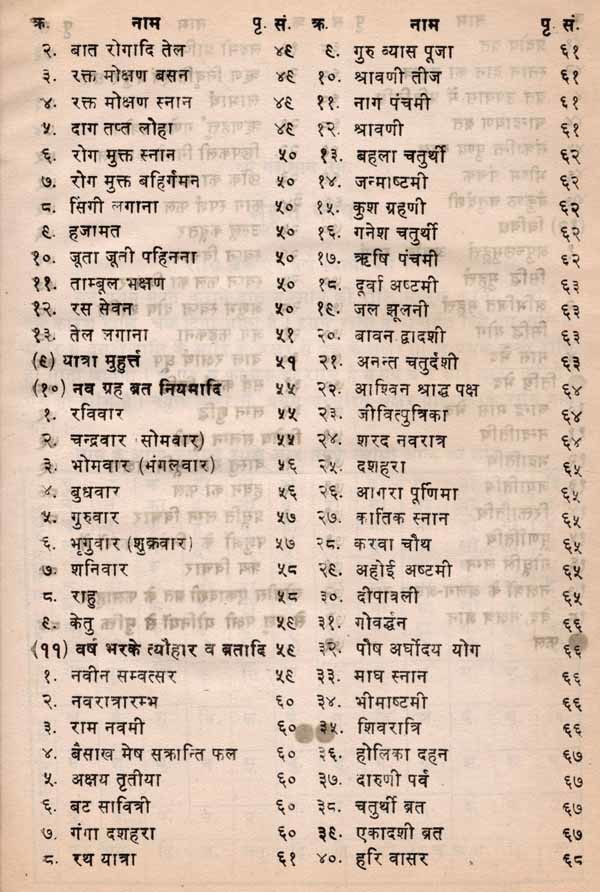 क्र. नाम पृ. सं.
२. बात रोगादि तेल ४९
३. रक्त मोक्षण बसन ४९
४. रक्त मोक्षण स्नान ४९
५. दाग तप्त लोहा ४९
६. रोग मुक्त स्नान ५०
७. रोग मुक्त बहिर्गमन ५०
८. सिंगी लगाना ५०
९. हजामत ५०
१०. जूता जूती पहिनना ५०
११. ताम्बूल भक्षण ५०
१२. रस सेवन ५०
१३. तेल लगाना ५१
(९) यात्रा मुहुर्त्त ५१
(१०) नव ग्रह ब्रत नियमादि ५५
१. रविवार ५५
२. चन्द्रवार (सोमवार) ५५
३. भोमवार (भंगलवार) ५६
४. बुधवार ५६
५. गुरुवार ५७
६. भृगुवार (शुक्रवार) ५७
७. शनिवार ५८
८. राहु ५८
९. केतु ५९
(११) वर्ष भरके त्यौहार व ब्रतादि ५९
१. नवीन सम्वत्सर ५९
२. नवरात्रारम्भ ६०
३. राम नवमी ६०
४. बैसाख मेष सक्रान्ति फल ६०
५. अक्षय तृतीया ६०
६. बट सावित्री ६०
७. गंगा दशहरा ६०
८. रथ यात्रा ६१
क्र. नाम पृ. सं.
९. गुरु व्यास पूजा ६१
१०. श्रावणी तीज ६१
११. नाग पंचमी ६१
१२. श्रावणी ६१
१३. बहला चतुर्थी ६२
१४. जन्माष्टमी ६२
१५. कुश ग्रहणी ६२
१६. गनेश चतुर्थी ६२
१७. ऋषि पंचमी ६२
१८. दूर्वा अष्टमी ६३
१९. जल झूलनी ६३
२०. बावन द्वादशी ६३
२१. अनन्त चतुर्दशी ६३
२२. आश्विन श्राद्ध पक्ष ६४
२३. जीवित्पुत्रिका ६४
२४. शरद नवरात्र ६४
२५. दशहरा ६५
२६. आगरा पूर्णिमा ६५
२७. कार्तिक स्नान ६५
२८. करवा चौथ ६५
२९. अहोई अष्टमी ६५
३०. दीपावली ६५
३१. गोवर्द्धन ६६
३२. पौष अर्घोदय योग ६६
३३. माघ स्नान ६६
३४. भीमाष्टमी ६६
३५. शिवरात्रि ६६
३६. होलिका दहन ६७
३७. दारुणी पर्व ६७
३८. चतुर्थी ब्रत ६७
३९. एकादशी ब्रत ६७
४०. हरि वासर ६८